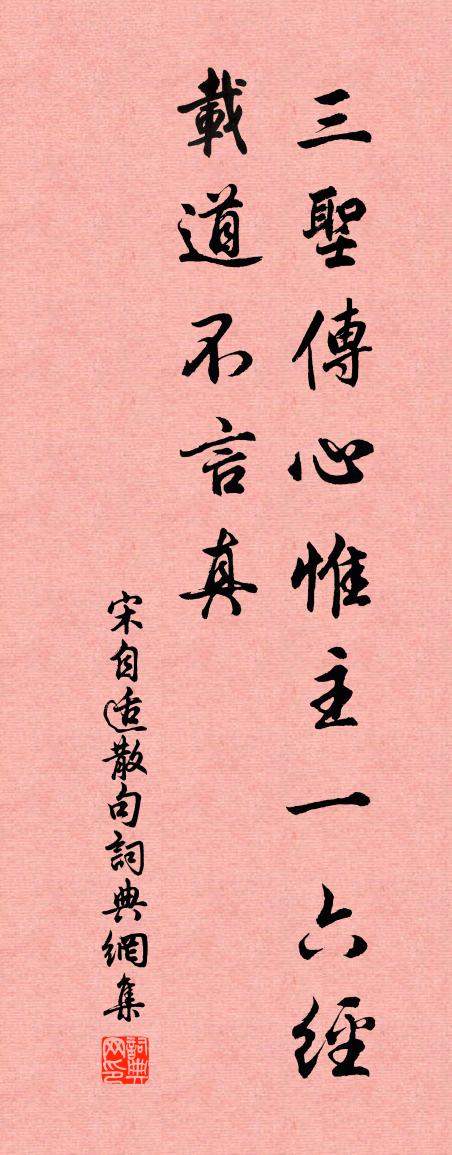 三聖傳心惟主一六經
載道不言真
宋自适散句詞典網集
詞典網印